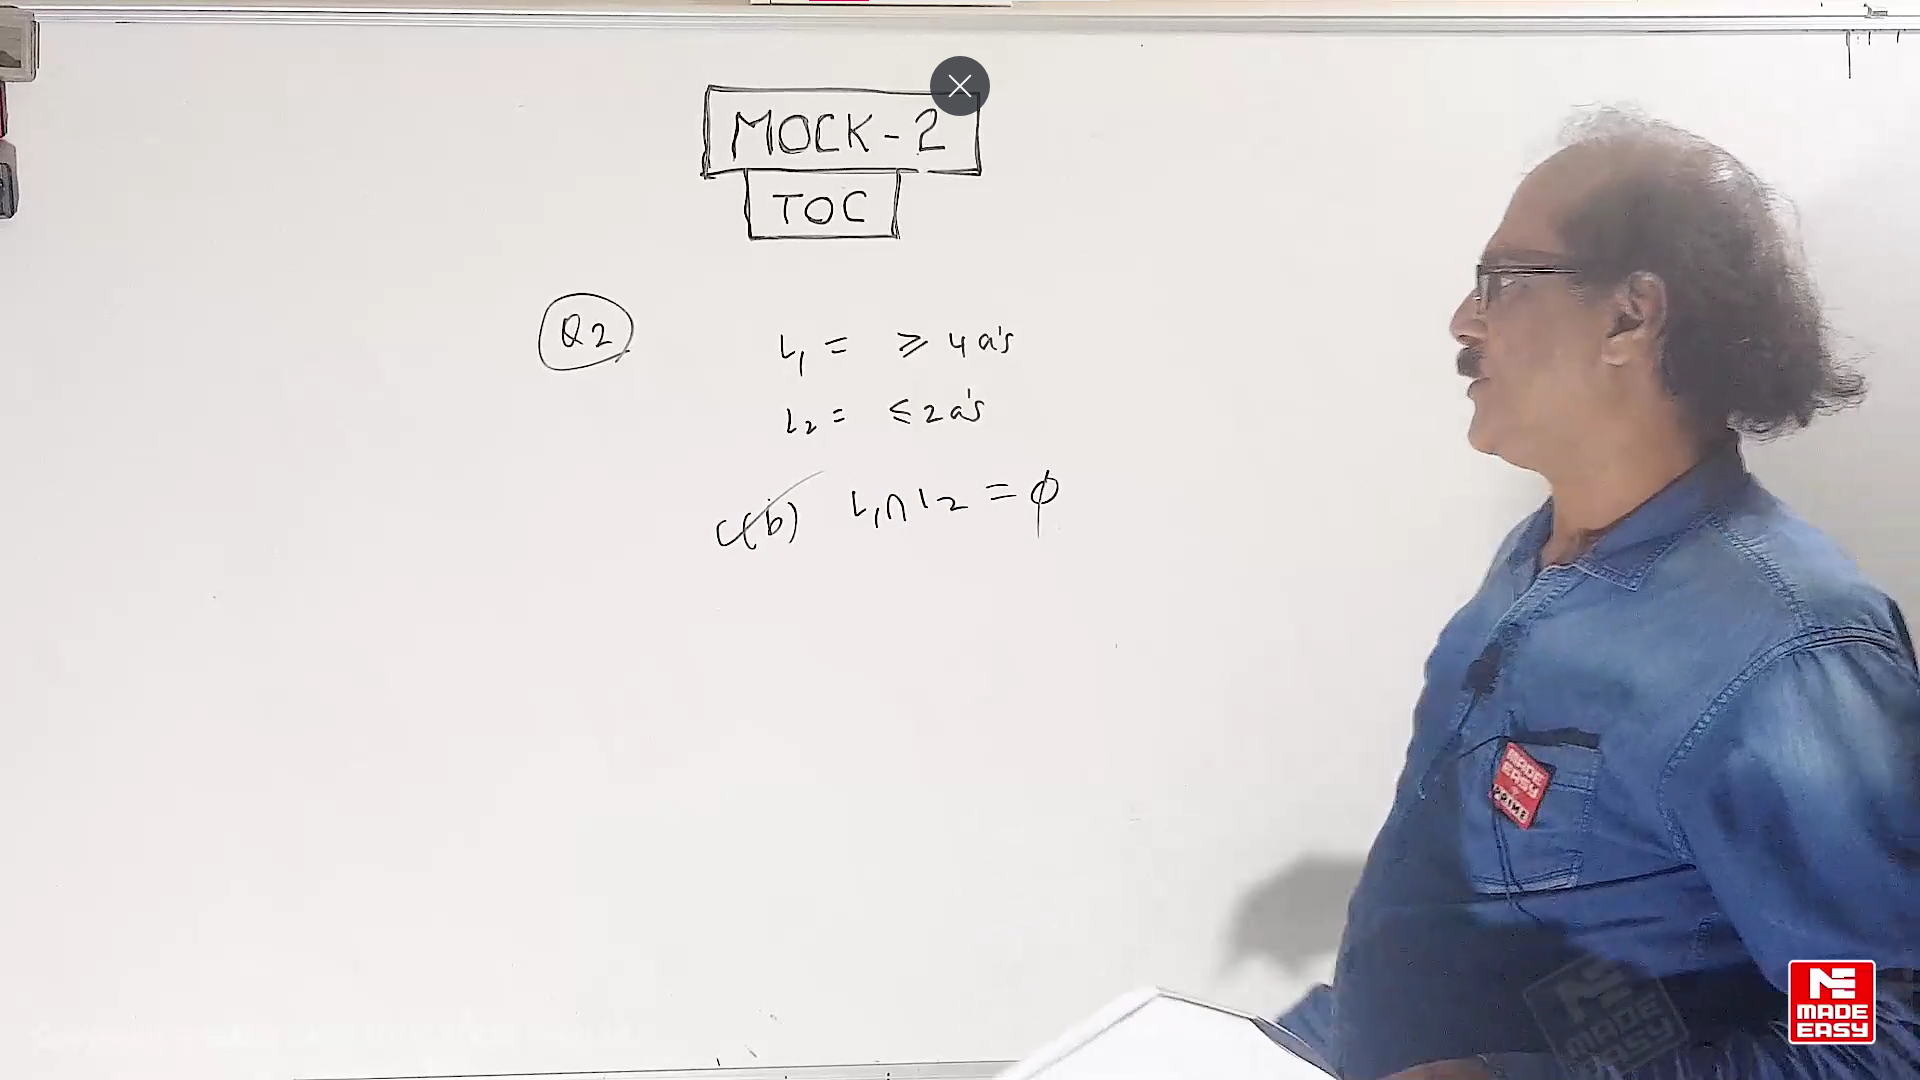 MOCK-2
TOC
Q2
L₁ = ≥ 4 a's
L₂ = ≤ 2 a's
(b) L₁∩L₂ = ϕ
MADE
EASY
PRIME
ME
MADE
EASY